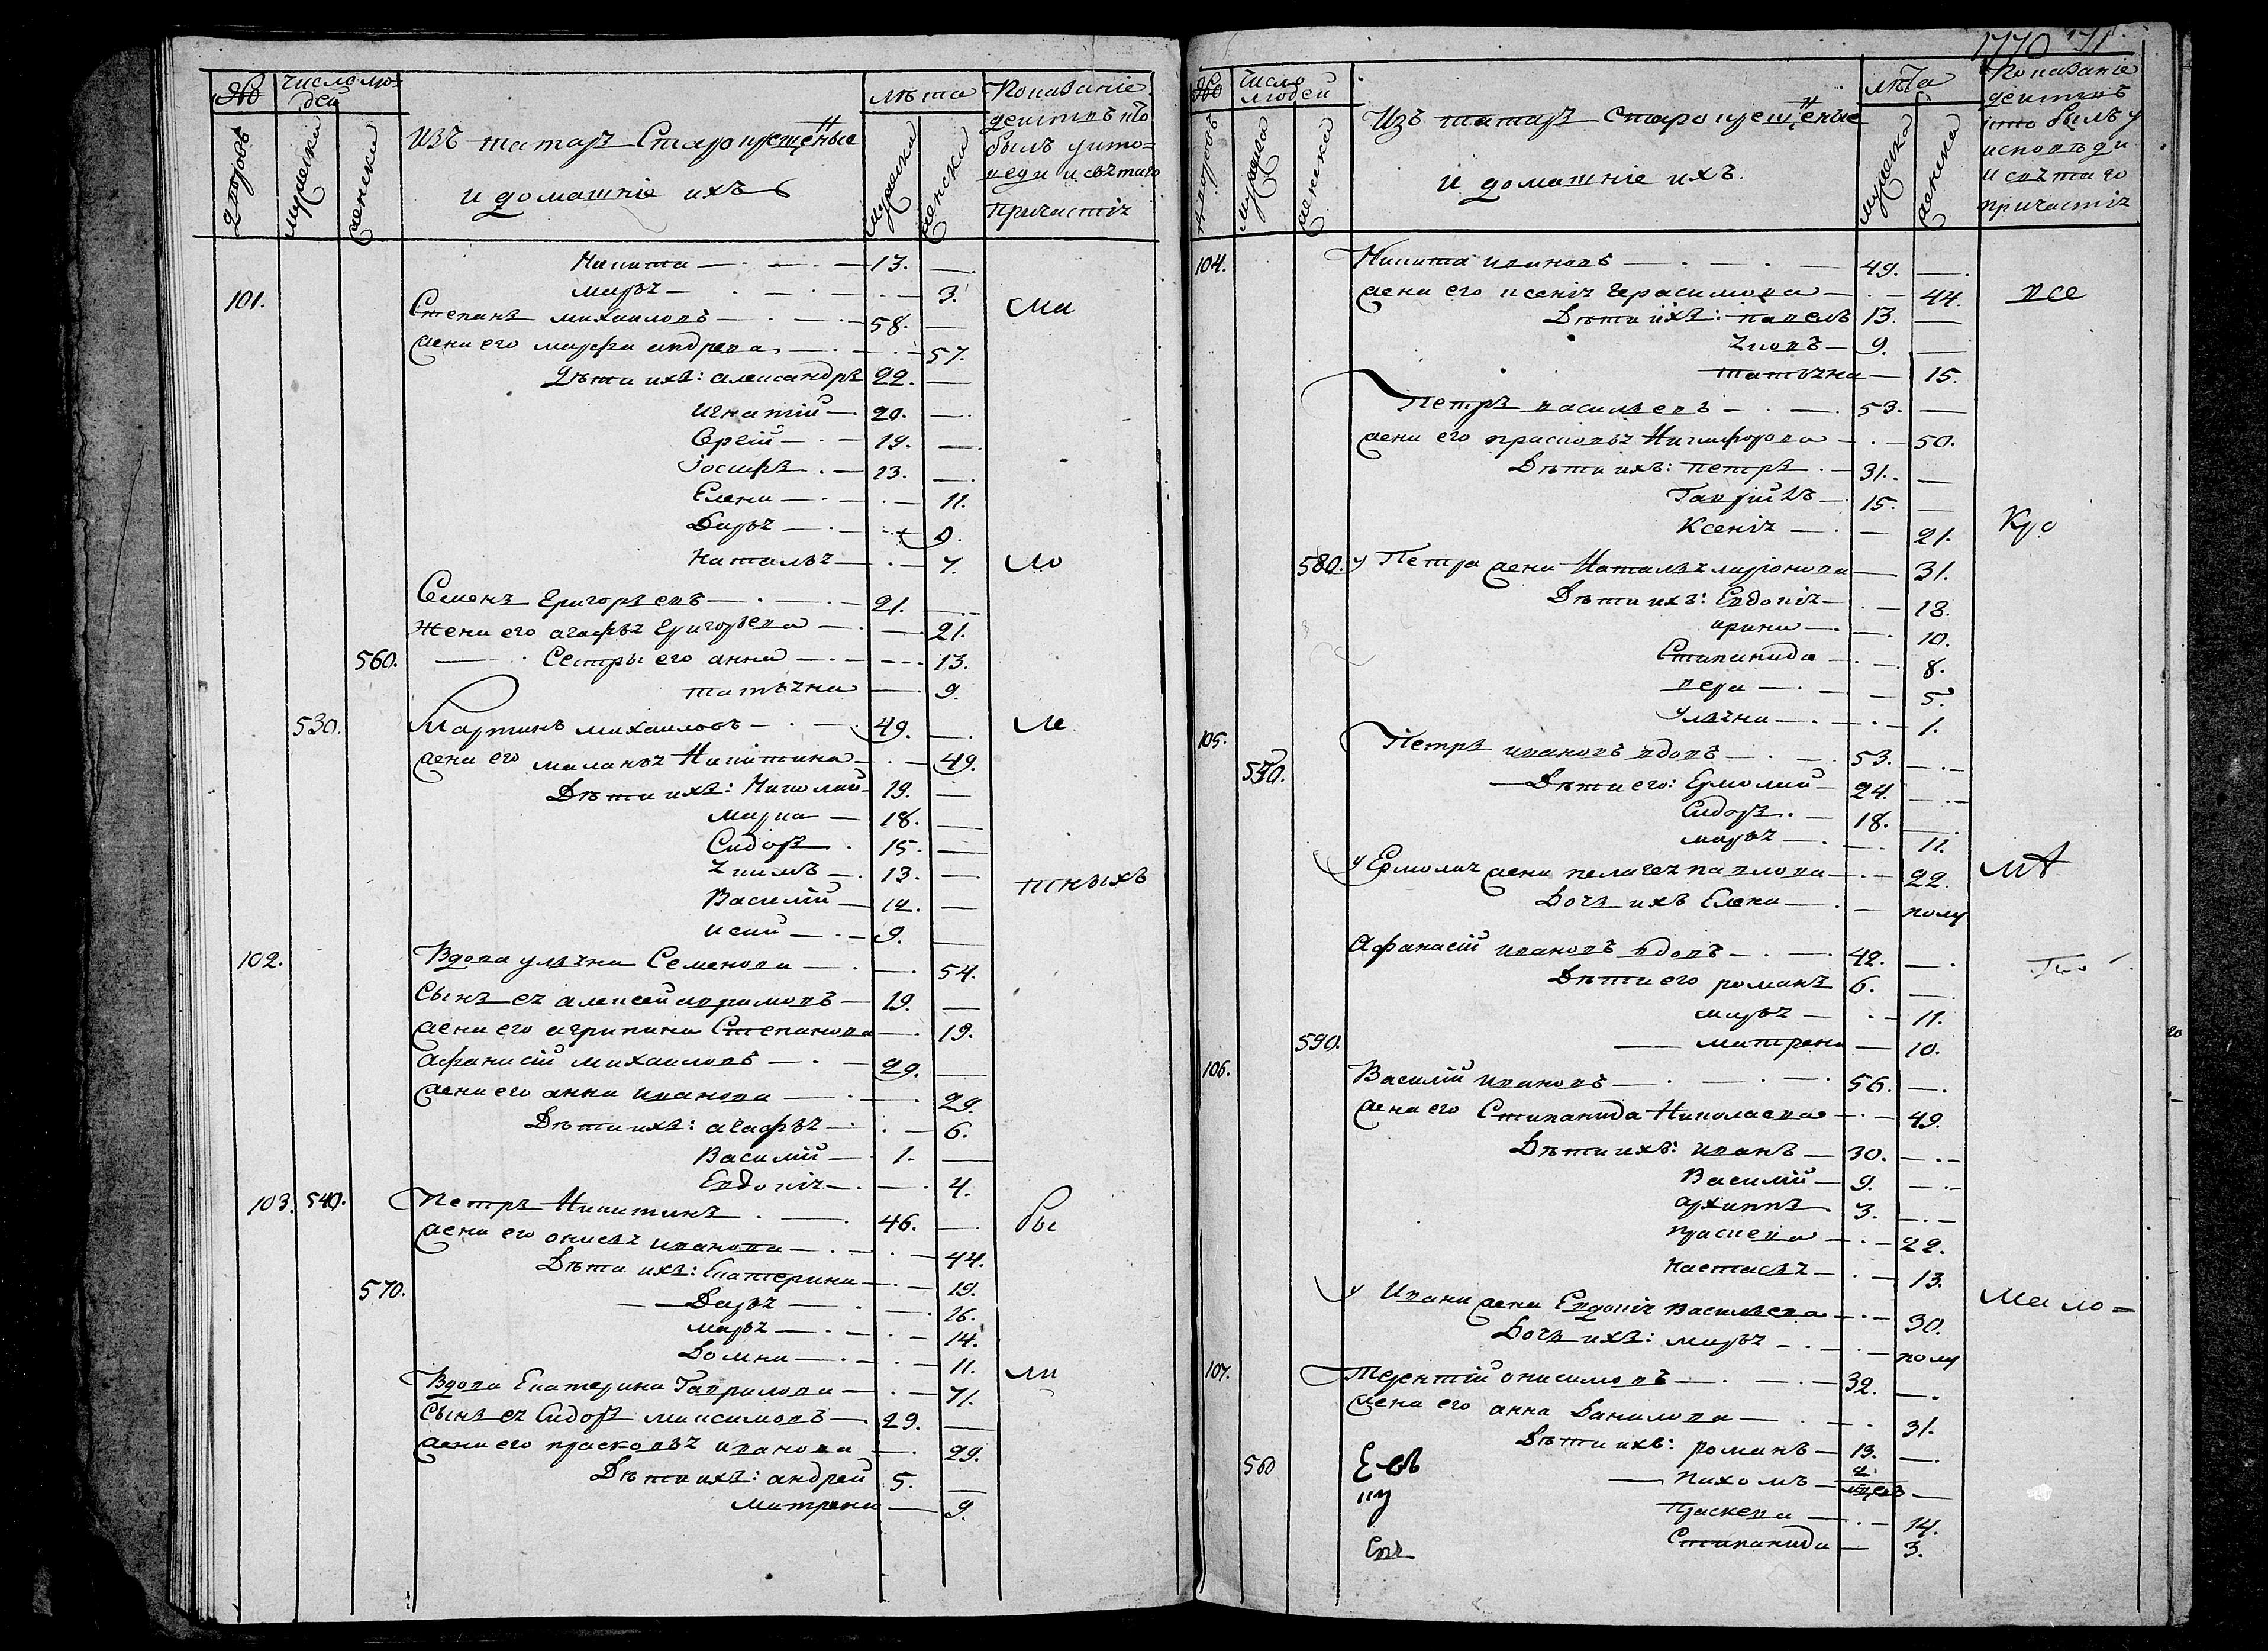 число лю-
дей
дворовъ
мужеска
женска
Изъ татаръ Старокрещеныя
и домашніе ихъ
лѣта
мужеска
женска
Показаніе
дѣйствъ кто
былъ у испо=
веди и свѣтаго
Причастія
Никита — 13. —
Марья — 3.
101. Степанъ михаиловъ — 58. —
жена его марфа андреева — 57.
Дѣти ихъ: александръ 22. —
игнатій — 20. —
Сергій — 19. —
Іосифъ — 13. —
Елена — 11.
Дарья —
Наталья — 7.
Семенъ Григорьевъ — 21. —
Жена его агафья Григорьева — 21.
560. — Сестры его анна — 13.
татьяна — 9.
530. Мартинъ михаиловъ — 49. —
жена его маланья Никитина — 49.
Дѣти ихъ: Николай — 19. —
Марка — 18. —
Сидоръ — 15. —
Якимъ — 13. —
Василій — 12. —
исай — 9. —
102. Вдова ульяна Семенова — 54.
Сынъ ея алексей ефримовъ — 19. —
жена его агрипина Степанова — 19.
афанасій михаиловъ — 29. —
жена его анна иванова — 29.
Дѣти ихъ: агафья — 6.
Василій — 1. —
Евдокія — 4.
103. 540. Петръ Никитинъ — 46. —
жена его онисья иванова — 44.
Дѣти ихъ: Екатерина — 19.
570. — Дарья — 16.
марья — 14.
Домна — 11.
Вдова Екатерина Гаврилова — 71.
Сынъ ея Сидоръ максимовъ — 29. —
жена его прасковья иванова — 29.
Дѣти ихъ: андрей 5. —
матрена — 9.
ли
ло
ле
тныхъ
ры
ли
1770
171
Число
людей
дворовъ
мужеска
женска
Изъ татаръ старокрещеныя
и домашніе ихъ.
лѣта
мужеска
женска
Показаніе
дѣйствъ
кто былъ у
исповѣди
и свѣтаго
причастія
104. Никита ивановъ — 49. —
жена его ксенія герасимова — 44. все
Дѣти ихъ: павелъ 13. —
Яковъ — 9. —
татьяна — 15.
Петръ васильевъ — 53. —
жена его прасковья Никифорова — 50.
Дѣти ихъ: петръ — 31. —
Гаврійлъ — 15. —
Ксенія — 21. Кро
580. у Петра жена Наталья миронова — 31.
Дѣти ихъ: Евдокія — 18.
ирина — 10.
Степанида — 8.
вера — 5.
Ульяна — 1.
105. Петръ ивановъ вдовъ — 53. —
550. — Дѣти его: Ермолай — 24. —
Сидоръ — 18. —
марья — 11.
у Ермолая жена пелагея павлова — 22. мѣ
Дочь ихъ Елена — полу
Афанасій ивановъ вдовъ — 42. —
Дѣти его романъ 6. —
марья — 11.
590. — матрена — 10.
106. Василій ивановъ — 56. —
жена его Степанида Николаева — 49.
Дѣти ихъ: иванъ — 30. —
Василій — 9. —
архиппъ 3. —
праскева — 22.
настасья — 13.
у Ивана жена Евдокія васильева — 30. мало=
Дочь ихъ: марья — полу
107. Терентій онисимовъ — 32. —
жена его анна Данилова — 31.
Дѣти ихъ: романъ — 13. —
560 — пахомъ — —
Праскева — 14.
Степанида — 3.